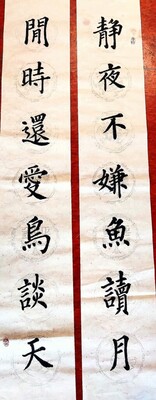 靜夜不嫌魚讀月
閒時還愛鳥談天